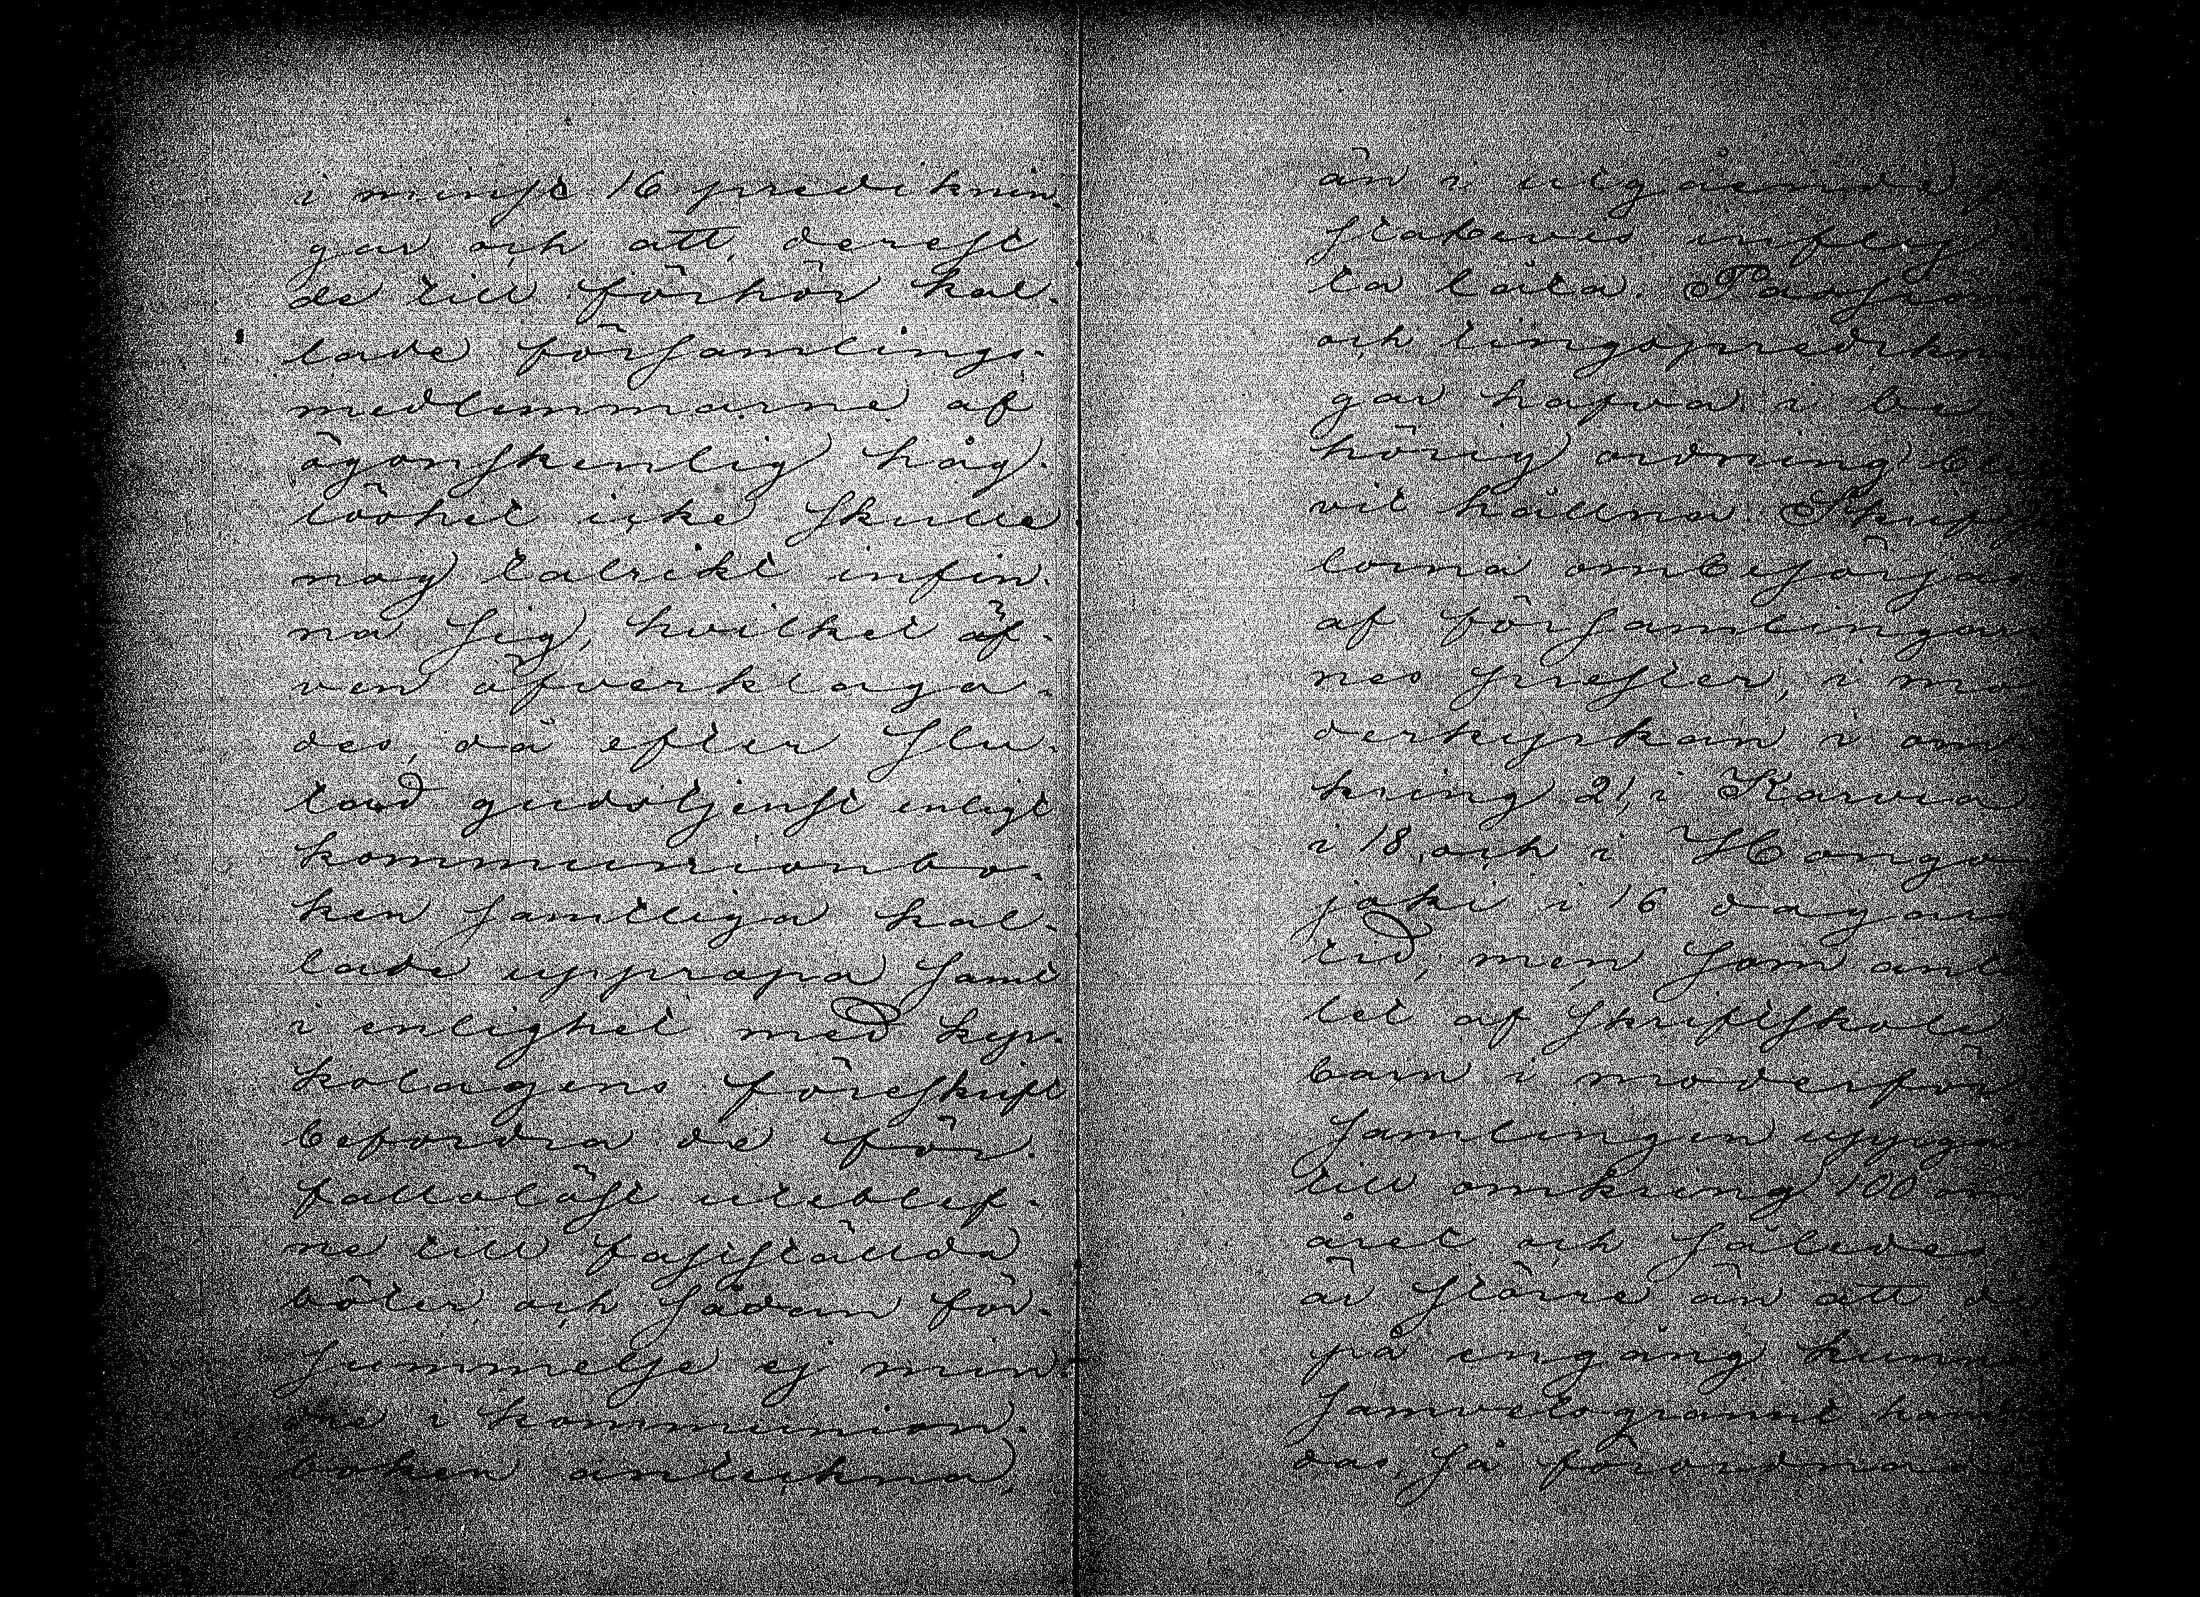 i minst 16 prediknin-
gar och att, derest
de till förhör kal-
lade församlings-
medlemmarne af
ögonskenlig håg-
löshet icke skulle
nog talrikt infin-
na sig, hvilket äf-
ven öfverklaga-
des, då efter slu-
tad gudstjenst enligt
kommunionbo-
ken samtliga kal-
lade uppropa samt
i enlighet med kyr-
kolagens föreskrift
befordra de för-
fallolöst uteblef-
ne till fastställda
böter och sådan för-
summelse ej min-
dre i kommunion-
boken anteckna,
än i utgående
stadevis
ta låta.
och tingspredikn
gar hafva i be
hörig ordning bli
vit hållna.
lorna ombesörjas
af församlingar
nes prester, i mo
derkyrkan i om
kring 21, i Karvia
i 18, och i Hongo
joki i 16 dagars
tid, men som anta
let af skriftskole
barn i moderför
samlingen uppgår
till omkring 100 om
året och således
är större än att de
på engång kunna
samvetsgrannt hand
das, så förordnas